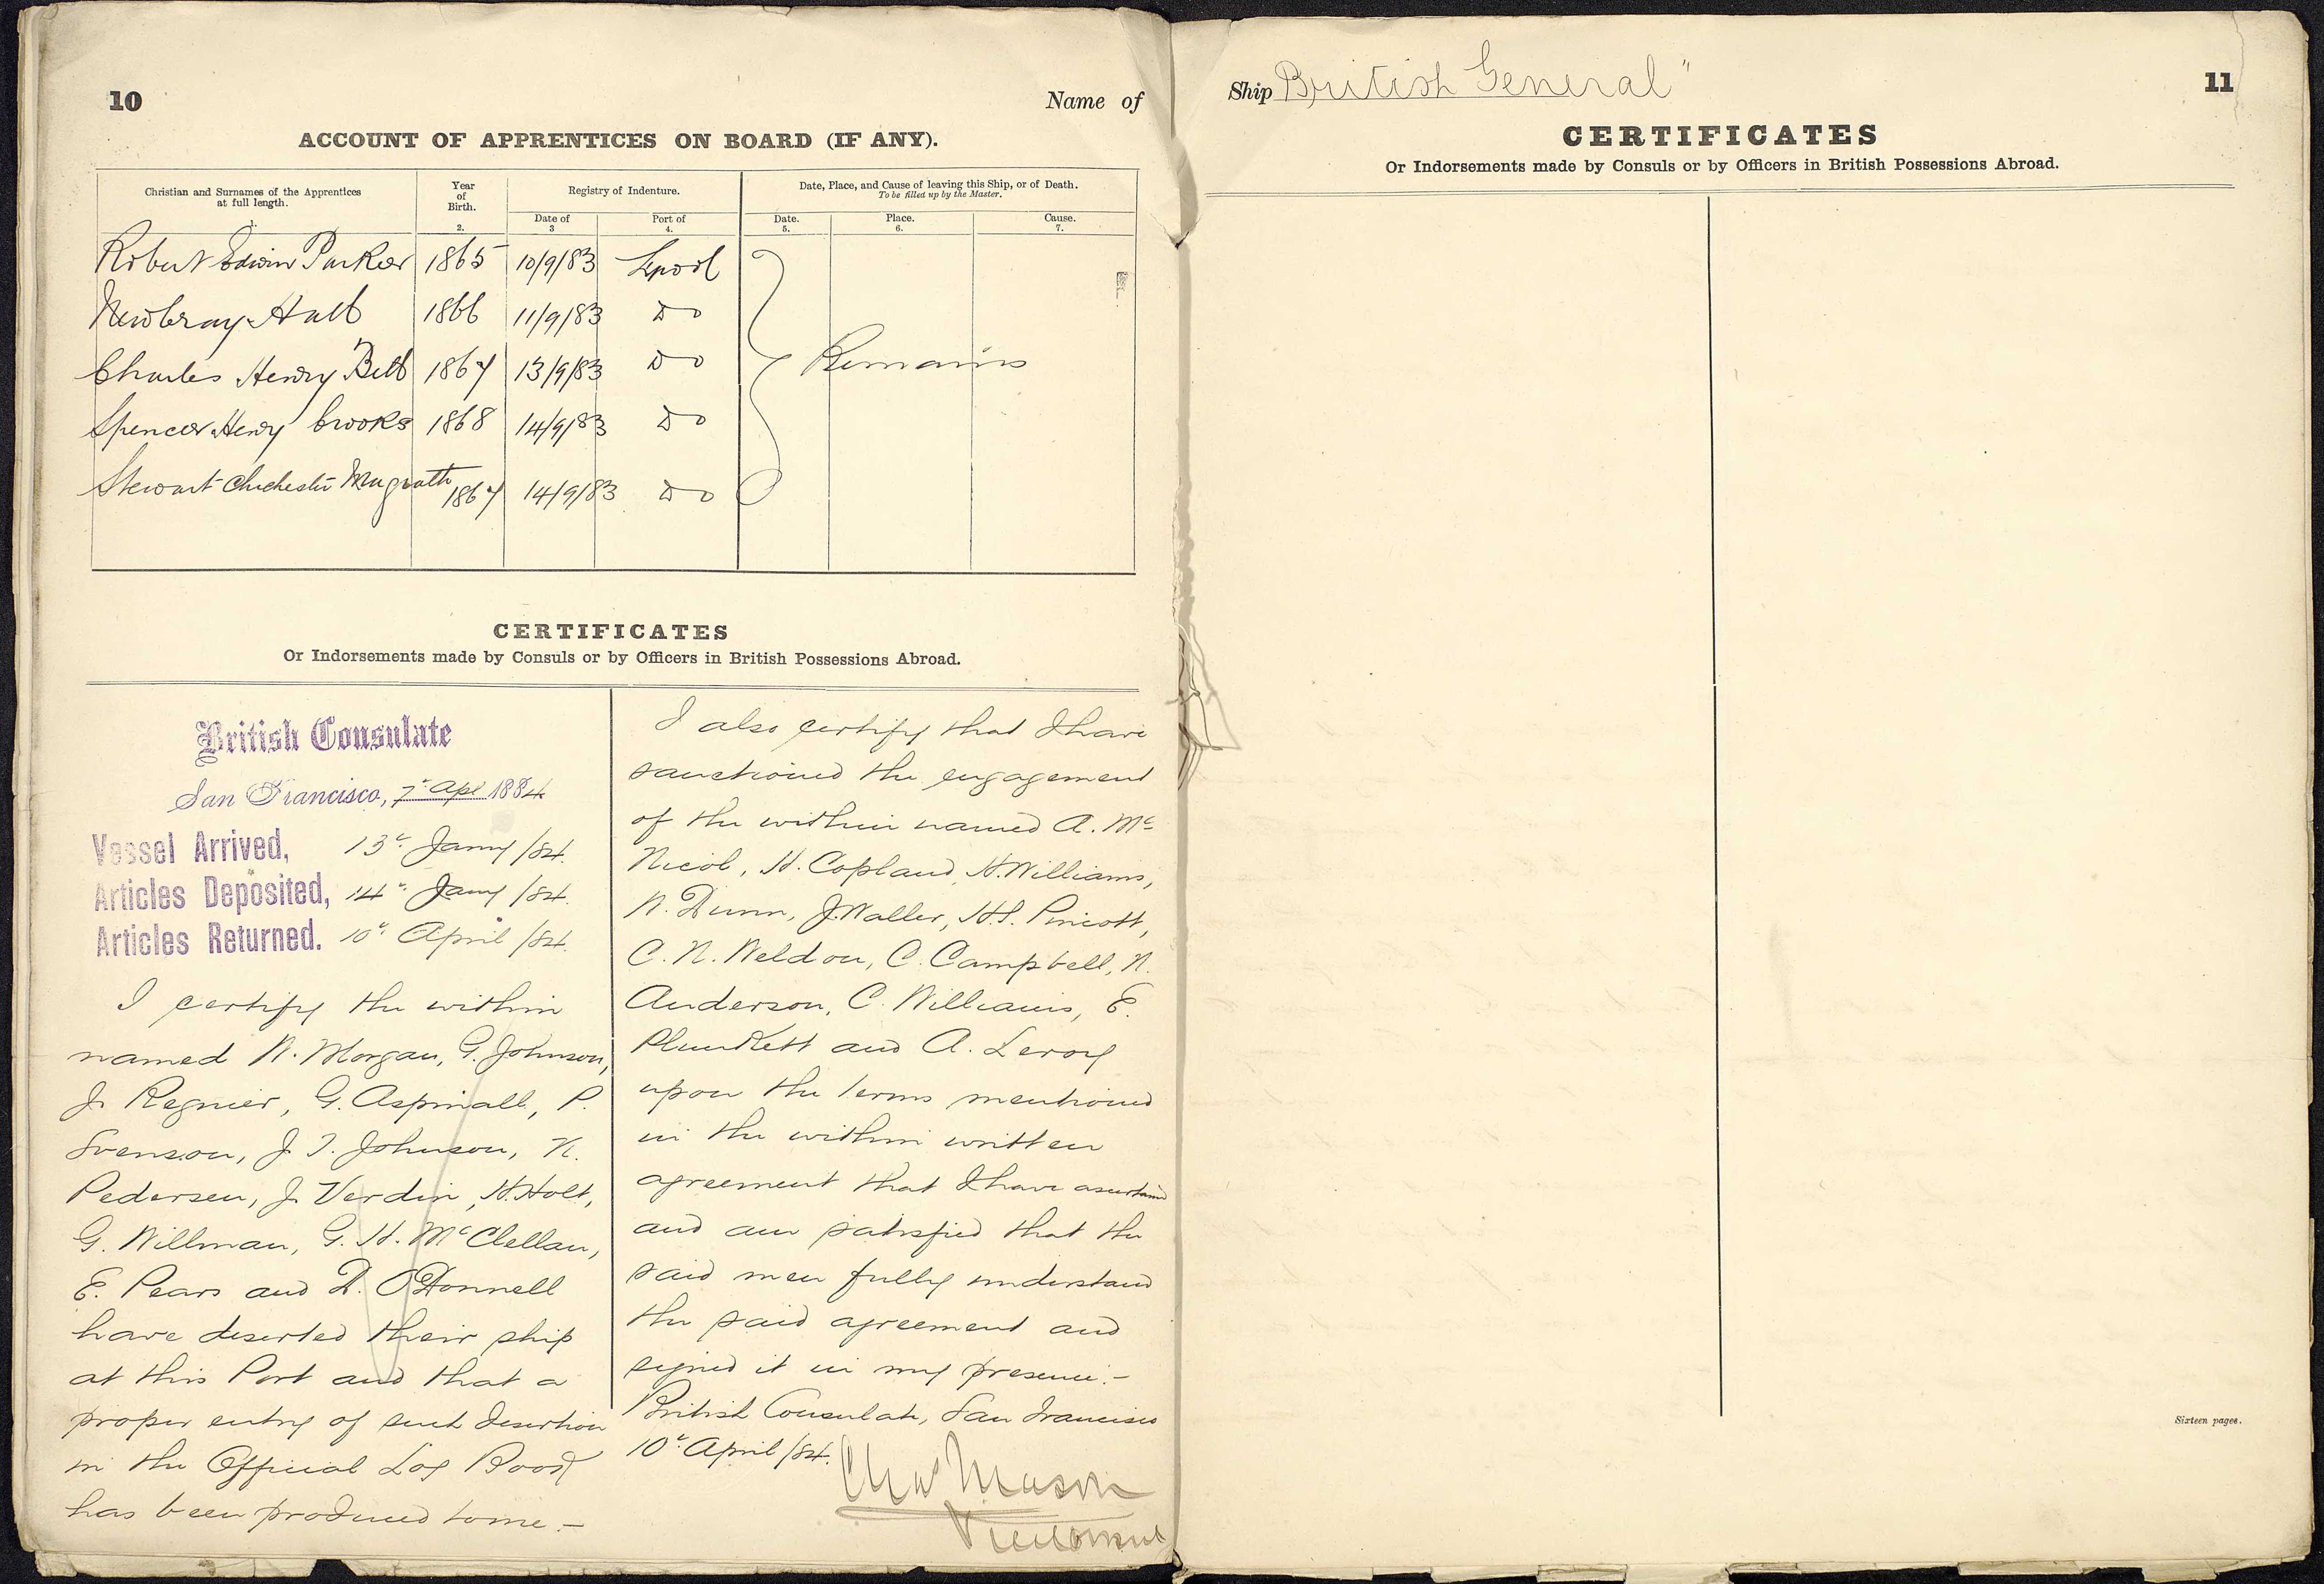 10
Name of
ACCOUNT OF APPRENTICES ON BOARD (IF ANY).
Christian and Surnames of the Apprentices
at full length.
1.
Year
of
Birth.
2.
Registry of Indenture.
Date of
3
Port of
4.
Date, Place, and Cause of leaving this Ship, or of Death.
To be filled up by the Master.
Date.
5.
Place.
6.
Cause.
7.
Robert Edwin Parker 1865 10/9/83 Lpool
Hall 1866 11/9/83 Do
Charles Henry Bell 1867 13/9/83 Do
Remains
Spencer Henry Crooks 1868 14/9/83 Do
Stewart Chichester Magrath 1867 14/9/83 Do
CERTIFICATES
Or Indorsements made by Consuls or by Officers in British Possessions Abroad.
British Consulate
San Francisco, 7th Apl 1884
Vessel Arrived, 13th Jany /84.
Articles Deposited, 14th Jany /84.
Articles Returned. 10th April /84.
I certify the within
named W. Morgan, G. Johnson,
J. Regnier, G. Aspinall, P.
Svenson, J. T. Johnson, N.
Pedersen, J. Verdin, H. Holt,
G. Willman, G. H. McClellan,
E. Pears and D. O'Donnell
have deserted their ship
at this Port and that a
proper entry of such desertion
in the Official Log Book
has been produced to me.—
I also certify that I have
sanctioned the engagement
of the within named A. Mc
Nicol, H. Copland, H. Williams,
W. Dunn, J. Waller, H.S. Pincott,
C. W. Weldon, C. Campbell, W.
Anderson, C. Williams, E.
Plunkett and A. Leroy
upon the terms mentioned
in the within written
agreement that I have ascertained
and am satisfied that the
said men fully understand
the said agreement and
signed it in my presence.—
British Consulate, San Francisco
10th April /84.
Chas Mason
Vice Consul
Ship British General"
11
CERTIFICATES
Or Indorsements made by Consuls or by Officers in British Possessions Abroad.
Sixteen pages.